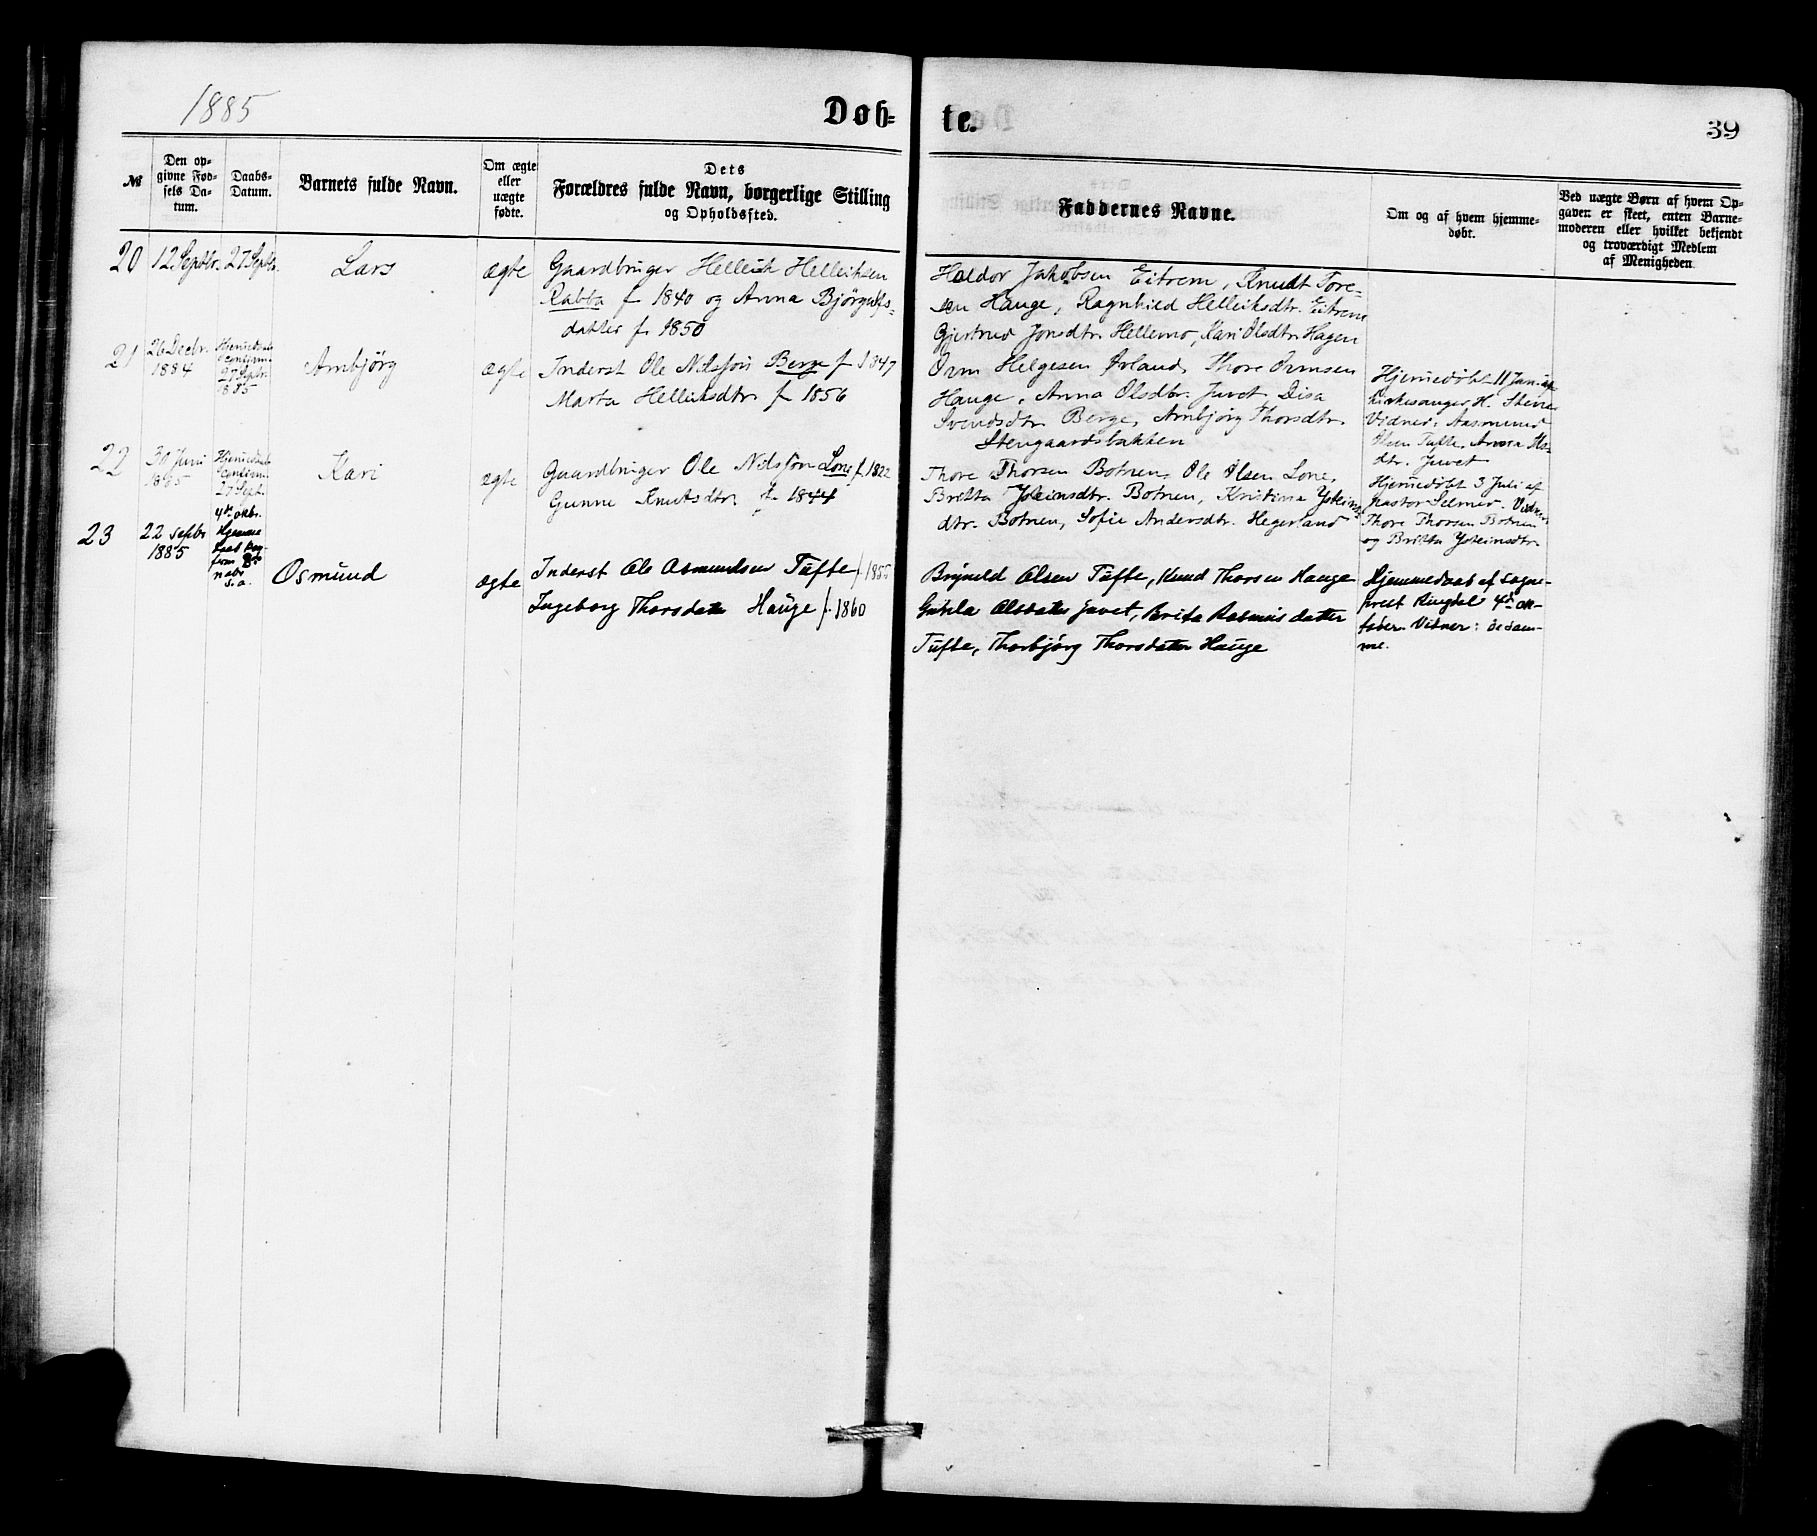 1885
Døb-
te.
39
№
Den op-
givne Fød-
sels Da-
tum.
Daabs-
Datum.
Barnets fulde Navn.
Om ægte
eller
uægte
fødte.
Dets
Forældres fulde Navn, borgerlige Stilling
og Opholdssted.
Faddernes Navne.
Om og af hvem hjemme-
døbt.
Ved uægte Børn af hvem Op-
gaven er skeet, enten Barne-
moderen eller hvilket bekjendt
og troværdigt Medlem
af Menigheden.
20
12 Septbr.
27 Septbr.
Lars
ægte
Gaardbruger Helleik Helleiksen
Rabba f 1840 og Anna Bjørgulfs-
datter f. 1850
Haldor Jakobsen Eitrem, Knudt Tore-
sen Hauge, Ragnhild Helleiksdtr. Eitrem
Gjertrud Jonsdtr. Hellemo, Kari Olsdtr. Hagen
21
26 Decbr.
1884
27 Septbr.
1885
Arnbjørg
ægte
Inderst Ole Nilsson Berge f 1847
Marta Helleiksdtr. f 1856
Orm Helgesen Århand, Thore Ormsen
Hauge, Anna Olsdtr. Juvet, Disa
Svendsdtr. Berge, Arnbjørg Thorsdtr.
Stengaardsbakken
Hjemmedøbt 11 Jan. af
kirkesanger H.
Vidner: Aasmund
Olsen Tufte, Anna
dtr. Juvet
22
30 Juni
1885
27 Sept.
Kari
ægte
Gaardbruger Ole Nilsson Lone f. 1822
Gunne Knutsdtr. f. 1844
Thore Thorsen Botnen, Ole Olsen Lone,
Britta Ysteinsdtr. Botnen, Kristina Ysteins-
dtr. Botnen, Sofie Andersdtr. Hegerland
Hjemmedøbt 3 Juli af
pastor Selmer. Vidner
Thore Thorsen Botnen
og Britta Ysteinsdtr.
23
22 septbr
1885
4de oktbr.
Hjemme
daab
s.a.
Osmund
ægte
Inderst Ole Asmundsen Tufte f. 1855
Ingeborg Thorsdatter Hauge f. 1860
Brynild Olsen Tufte, Knud Thorsen Hauge
Guhla Olsdatter Juvet, Brita Rasmusdatter
Tufte, Thorbjørg Thorsdatter Hauge
Hjemmedaab af sogne-
prest Ringdal 4de ok-
tober. Vidner: de sam-
me.